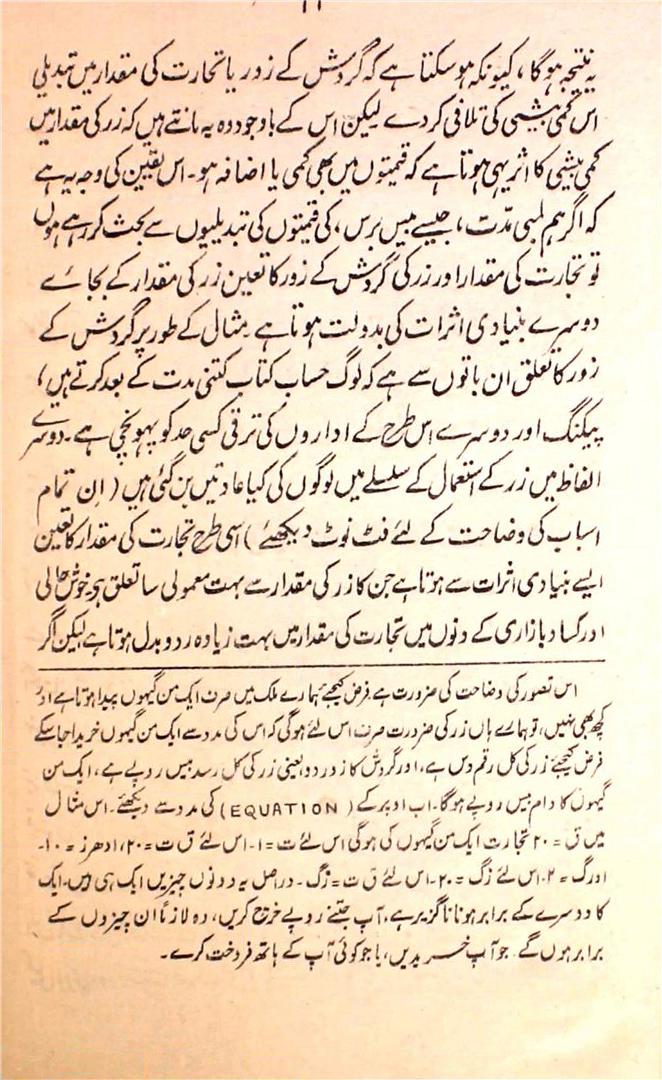 ۱۱
یہ نتیجہ ہوگا، کیونکہ ہوسکتا ہے کہ گردش کے زور یا تجارت کی مقدار میں تبدیلی
اس کمی بیشی کی تلافی کردے لیکن اس کے باوجود وہ یہ مانتے ہیں کہ زر کی مقدار میں
کمی بیشی کا اثر یہی ہوتا ہے کہ قیمتوں میں بھی کمی یا اضافہ ہو۔ اس یقین کی وجہ یہ ہے
کہ اگر ہم لمبی مدّت، جیسے بیس برس، کی قیمتوں کی تبدیلیوں سے بحث کر رہے ہوں
تو تجارت کی مقدار اور زر کی گردش کے زور کا تعین زر کی مقدار کے بجائے
دوسرے بنیادی اثرات کی بدولت ہوتا ہے۔ مثال کے طور پر گردش کے
زور کا تعلق ان باتوں سے ہے کہ لوگ حساب کتاب کتنی مدت کے بعد کرتے ہیں،
پیکنگ اور دوسرے اس طرح کے اداروں کی ترقی کسی حد کو پہونچی ہے۔ دوسرے
الفاظ میں زر کے استعمال کے سلسلے میں لوگوں کی کیا عادتیں بن گئی ہیں (اِن تمام
اسباب کی وضاحت کے لئے فٹ نوٹ دیکھئے) اسی طرح تجارت کی مقدار کا تعین
ایسے بنیادی اثرات سے ہوتا ہے جن کا زر کی مقدار سے بہت معمولی سا تعلق ہو۔ خوش حالی
اور کساد بازاری کے دنوں میں تجارت کی مقدار میں بہت زیادہ ردوبدل ہوتا ہے لیکن اگر
اس تصور کی وضاحت کی ضرورت ہے۔ فرض کیجئے ہمارے ملک میں صرف ایک من گیہوں پیدا ہوتا ہے اور
کچھ بھی نہیں، تو ہمارے ہاں زر کی ضرورت صرف اس لئے ہوگی کہ اس کی مدد سے ایک من گیہوں خریدا جاسکے
فرض کیجئے زر کی کل رقم دس ہے، اور گردش کا زور دو، یعنی زر کی کل رسد بیس روپے ہے، ایک من
گیہوں کا دام بیس روپے ہوگا۔ اب اوپر کے (EQUATION) کی مدد سے دیکھئے۔ اس مثال
میں ق = ۲۰ تجارت ایک من گیہوں کی ہوگی اس لئے ت = ۱۔ اس لئے ق ت = ۲۰، ادھر ز = ۱۰۔
اور گ = ۲۔ اس لئے زگ = ۲۰۔ اس لئے ق ت = زگ۔ دراصل یہ دونوں چیزیں ایک ہی ہیں۔ ایک
کا دوسرے کے برابر ہونا ناگزیر ہے، آپ جتنے روپے خرچ کریں، وہ لازماً ان چیزوں کے
برابر ہوں گے۔ جو آپ خریدیں، یا جو کوئی آپ کے ہاتھ فروخت کرے۔